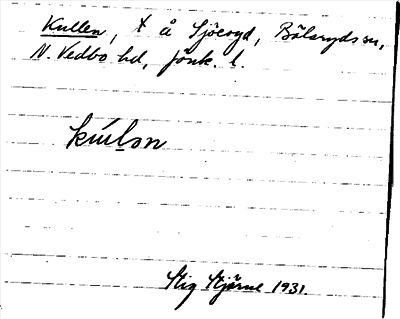 Kullen, † å Sjöeryd, Bälaryds sn,
N. Vedbo hd, Jönk. l.
Stig Stjärne 1931.